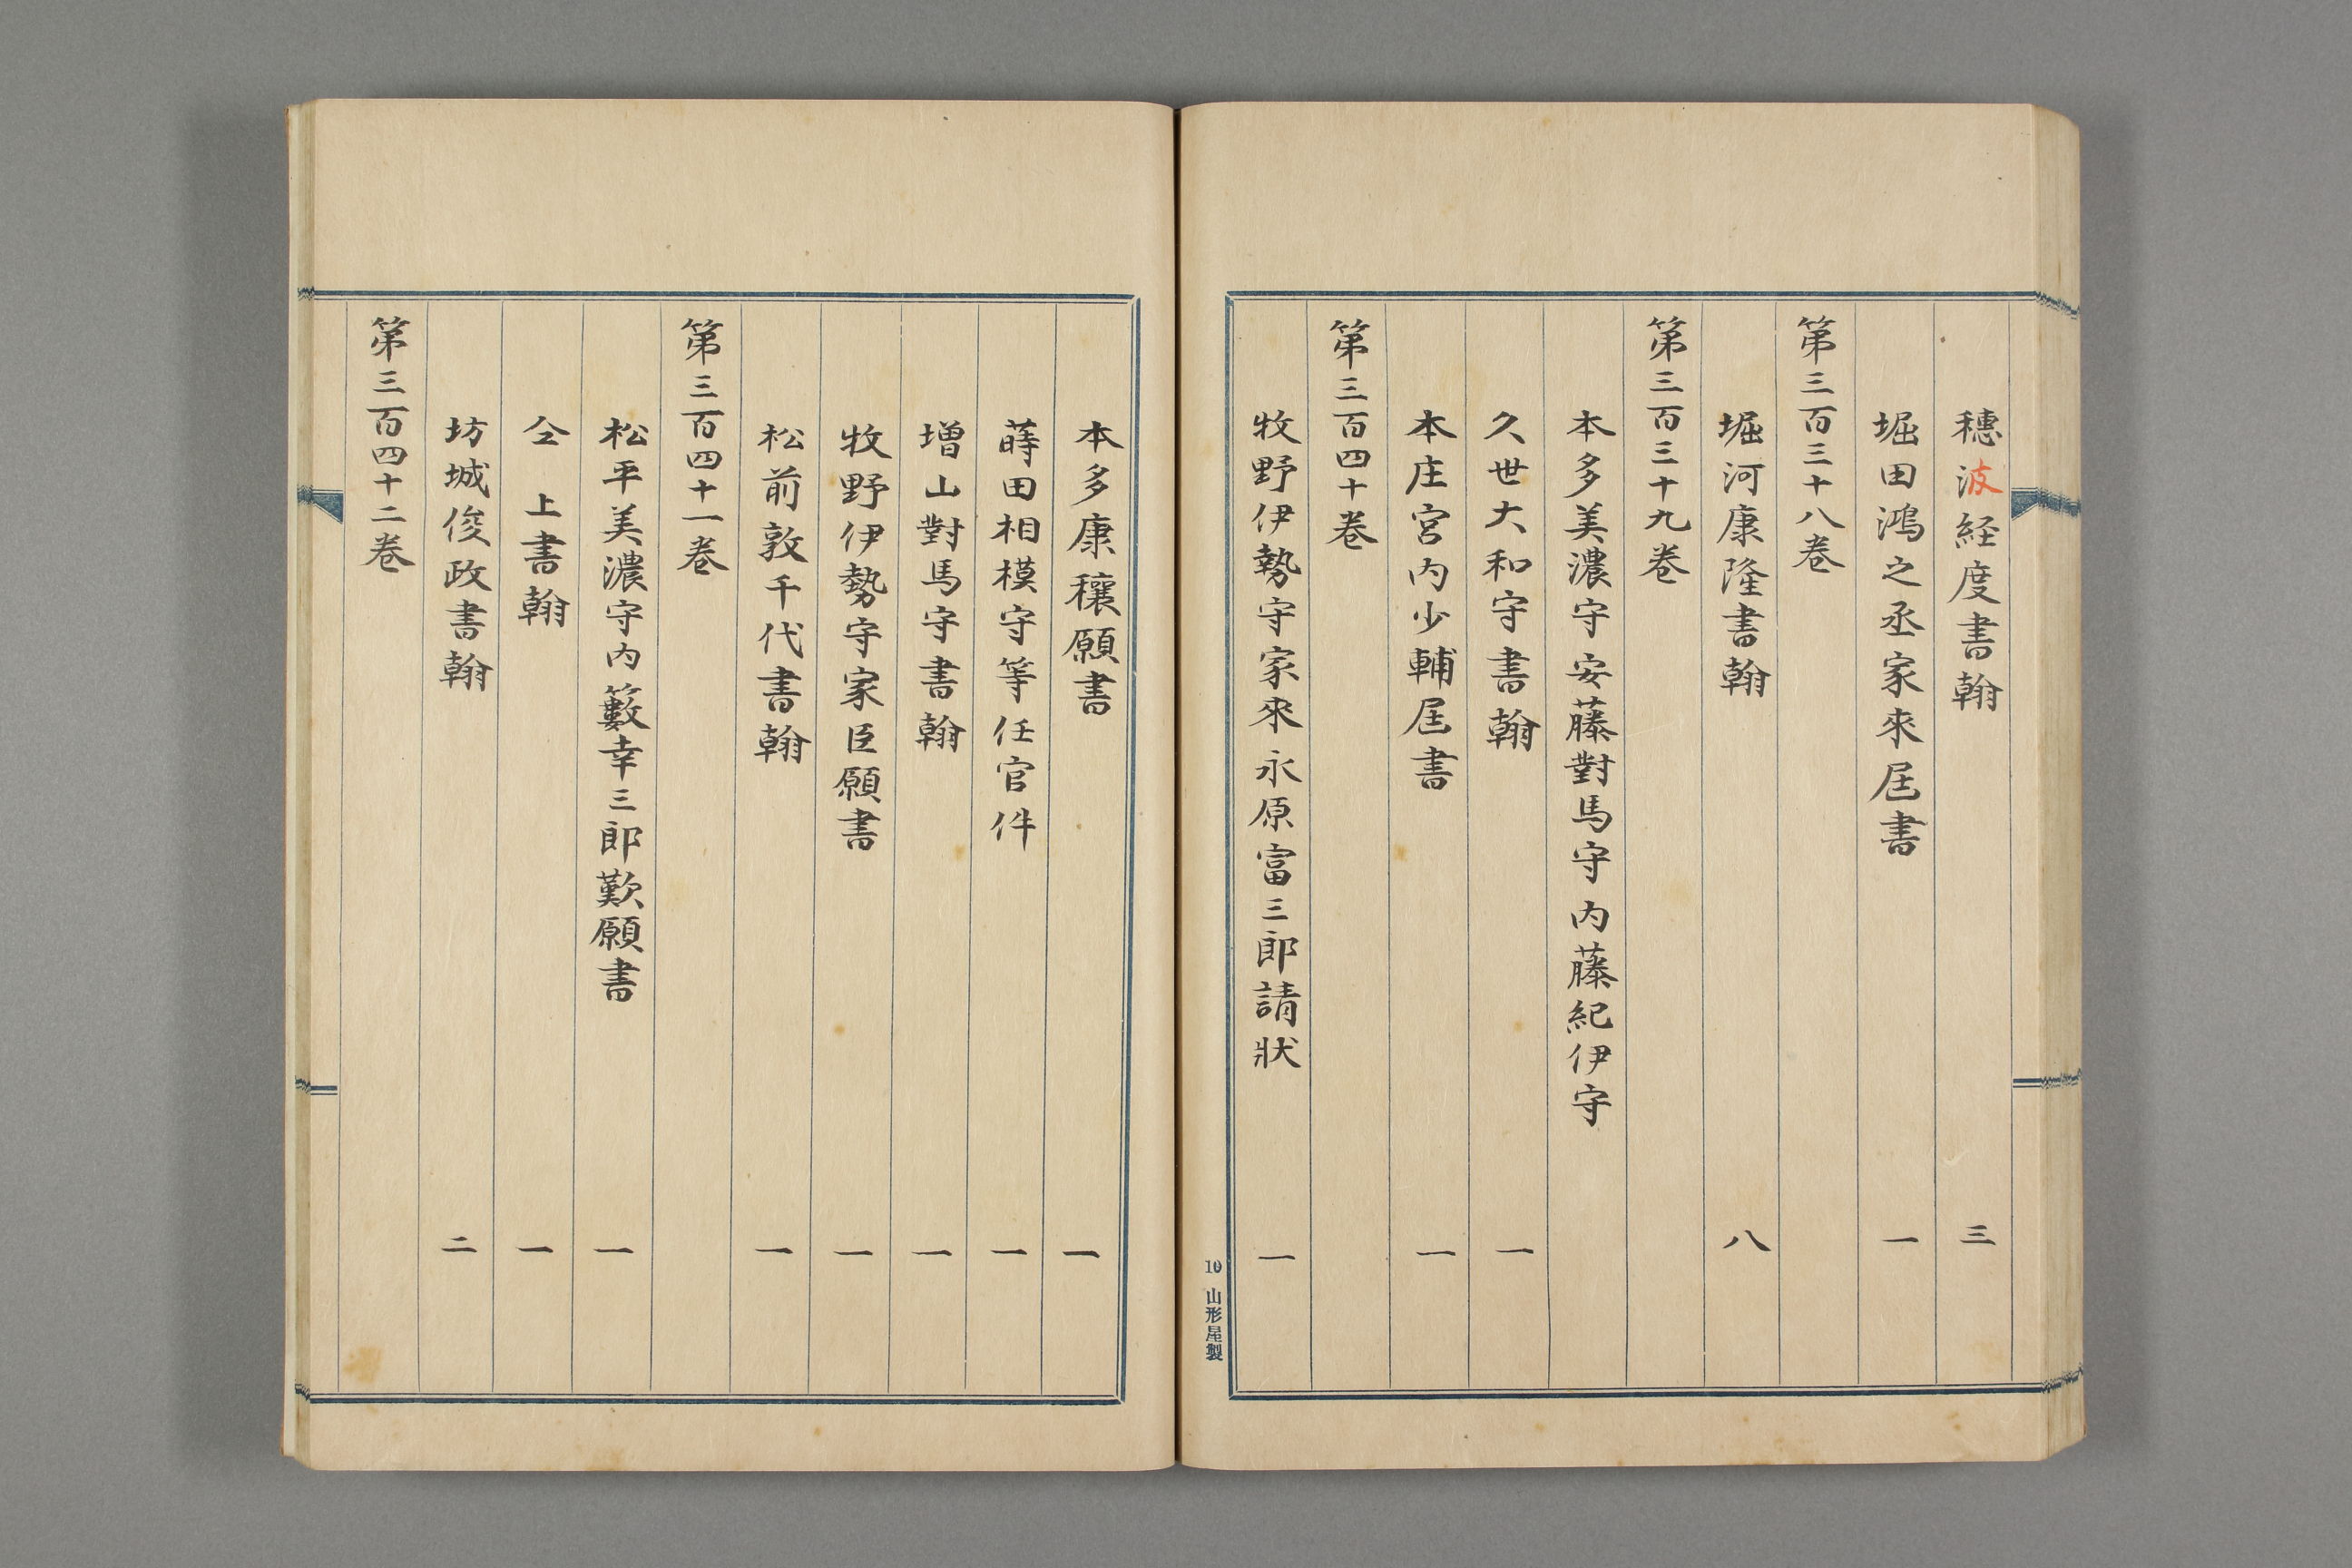 穗波経度書翰　三
堀田鴻之丞家來届書　一
第三百三十八巻
堀河康隆書翰　八
第三百三十九巻
本多美濃守安藤對馬守内藤紀伊守
久世大和守書翰　一
本庄宮内少輔届書　一
第三百四十巻
牧野伊勢守家來永原富三郎請狀　一
10 山形屋製
本多康穰願書　一
蒔田相模守等任官件　一
増山對馬守書翰　一
牧野伊勢守家臣願書　一
松前敦千代書翰　一
第三百四十一巻
松平美濃守内籔幸三郎歎願書　一
仝上書翰　一
坊城俊政書翰　二
第三百四十二巻